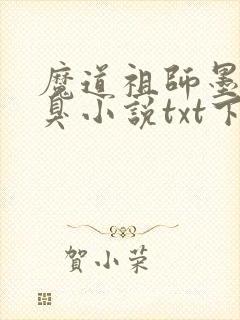 魔道祖師墨
臭小說txt下
賀小荣